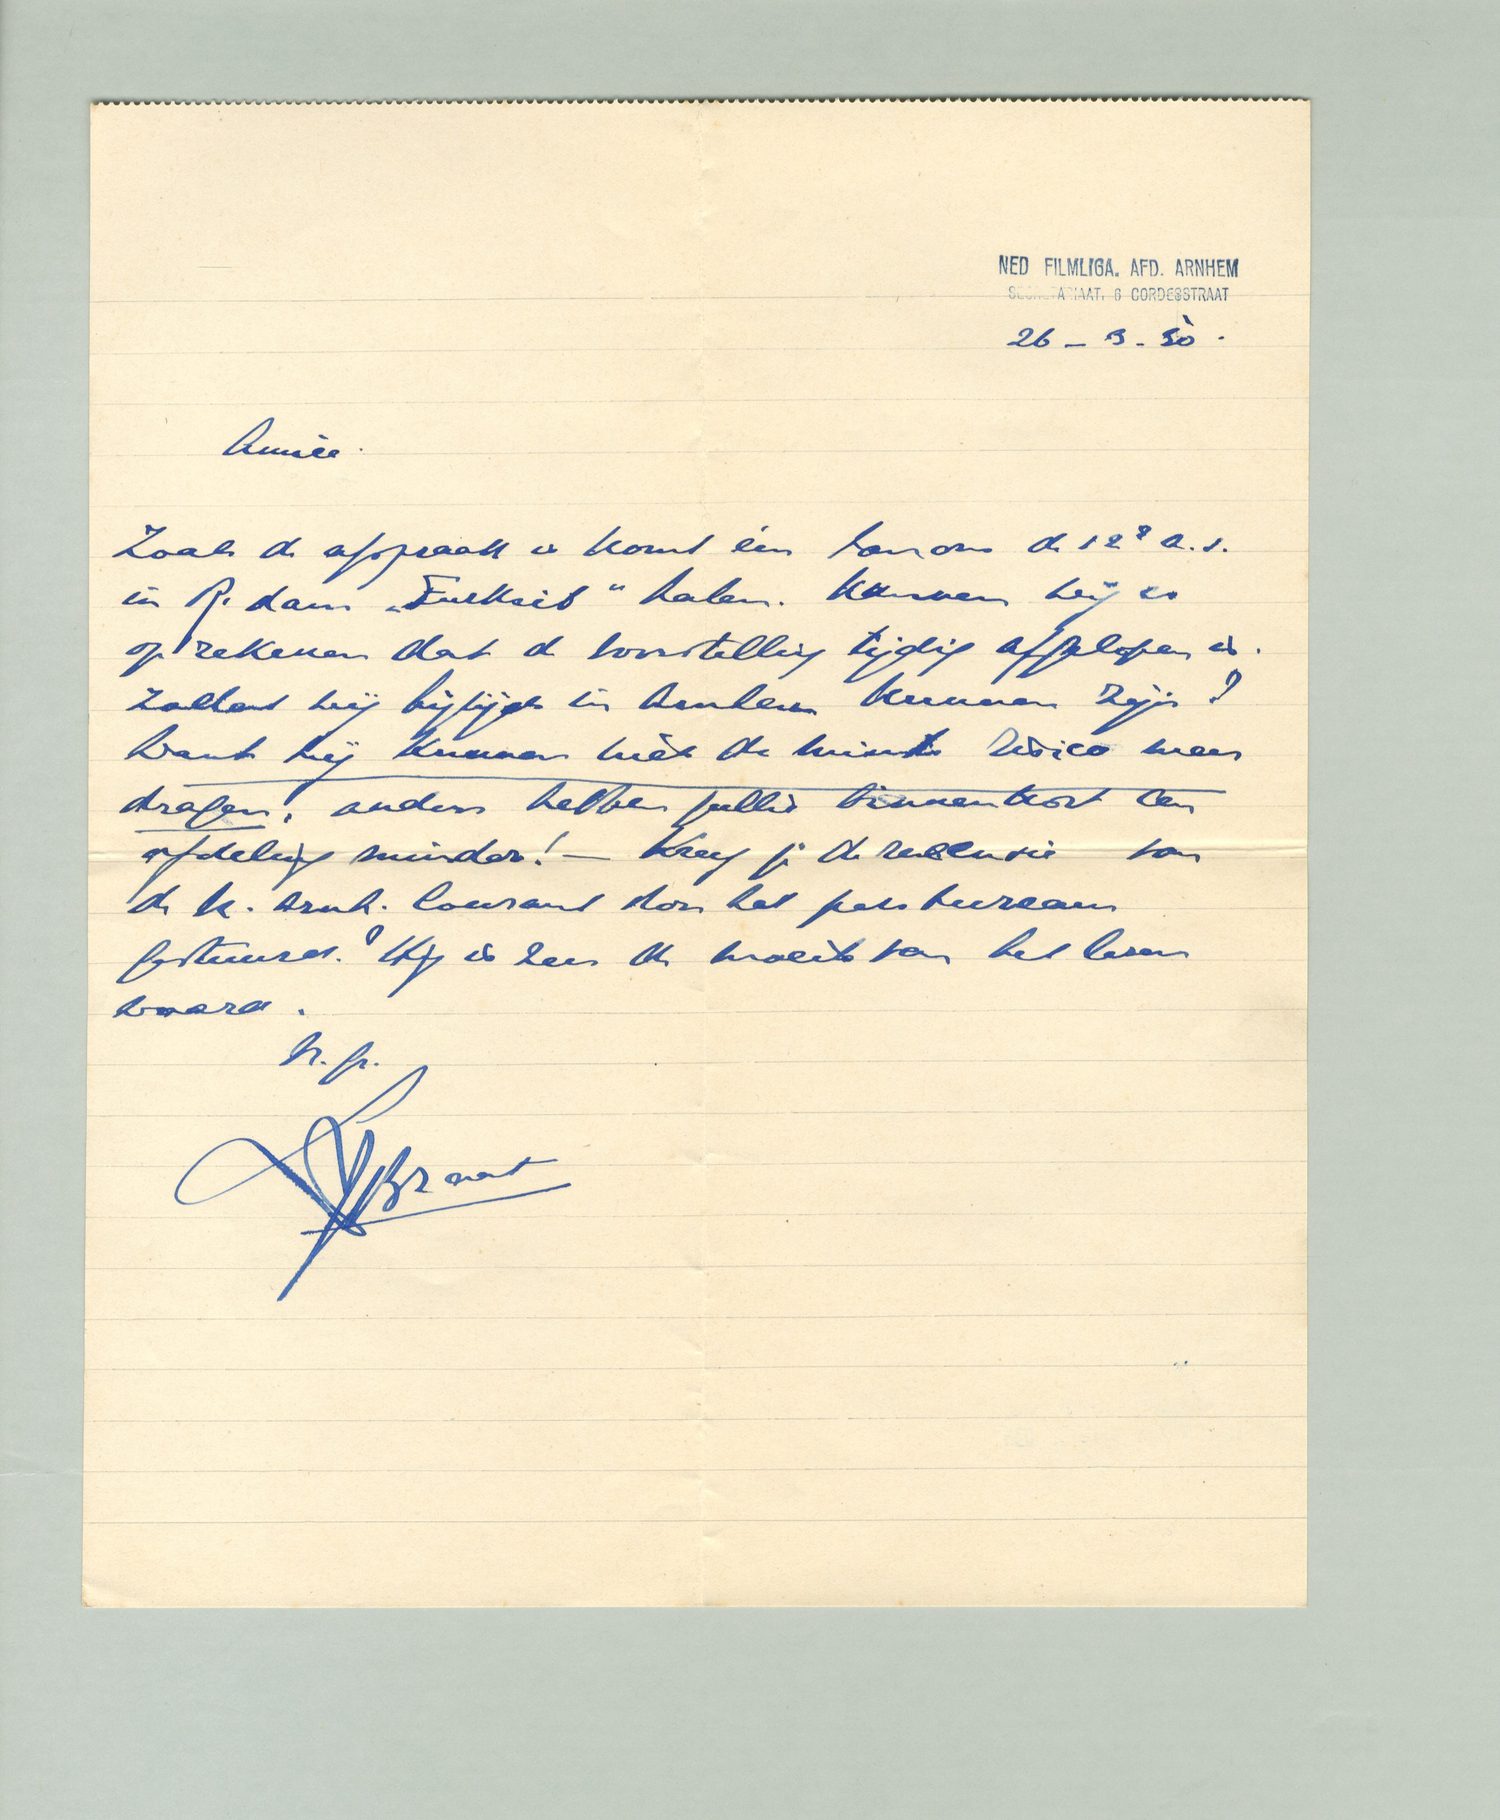 NED FILMLIGA. AFD. ARNHEM
SECRETARIAAT. 6 CORDESSTRAAT
26 - 3 - 30.
Amice.
Zoals de afspraak is komt één van ons de 12e a.s.
in R.dam „Turksib" halen. Kunnen wij er
op rekenen dat de voorstelling tijdig afgelopen is.
Zoodat wij bijtijds in Arnhem kunnen zijn?
Want wij kunnen niet de minste risico meer
dragen, anders hebben jullie binnenkort een
afdeling minder! — Kreeg je de recensie van
de N. Arnh. Courant door het persbureau
gestuurd? Hij is zeer de moeite van het lezen
waard.
m. gr.
Braat